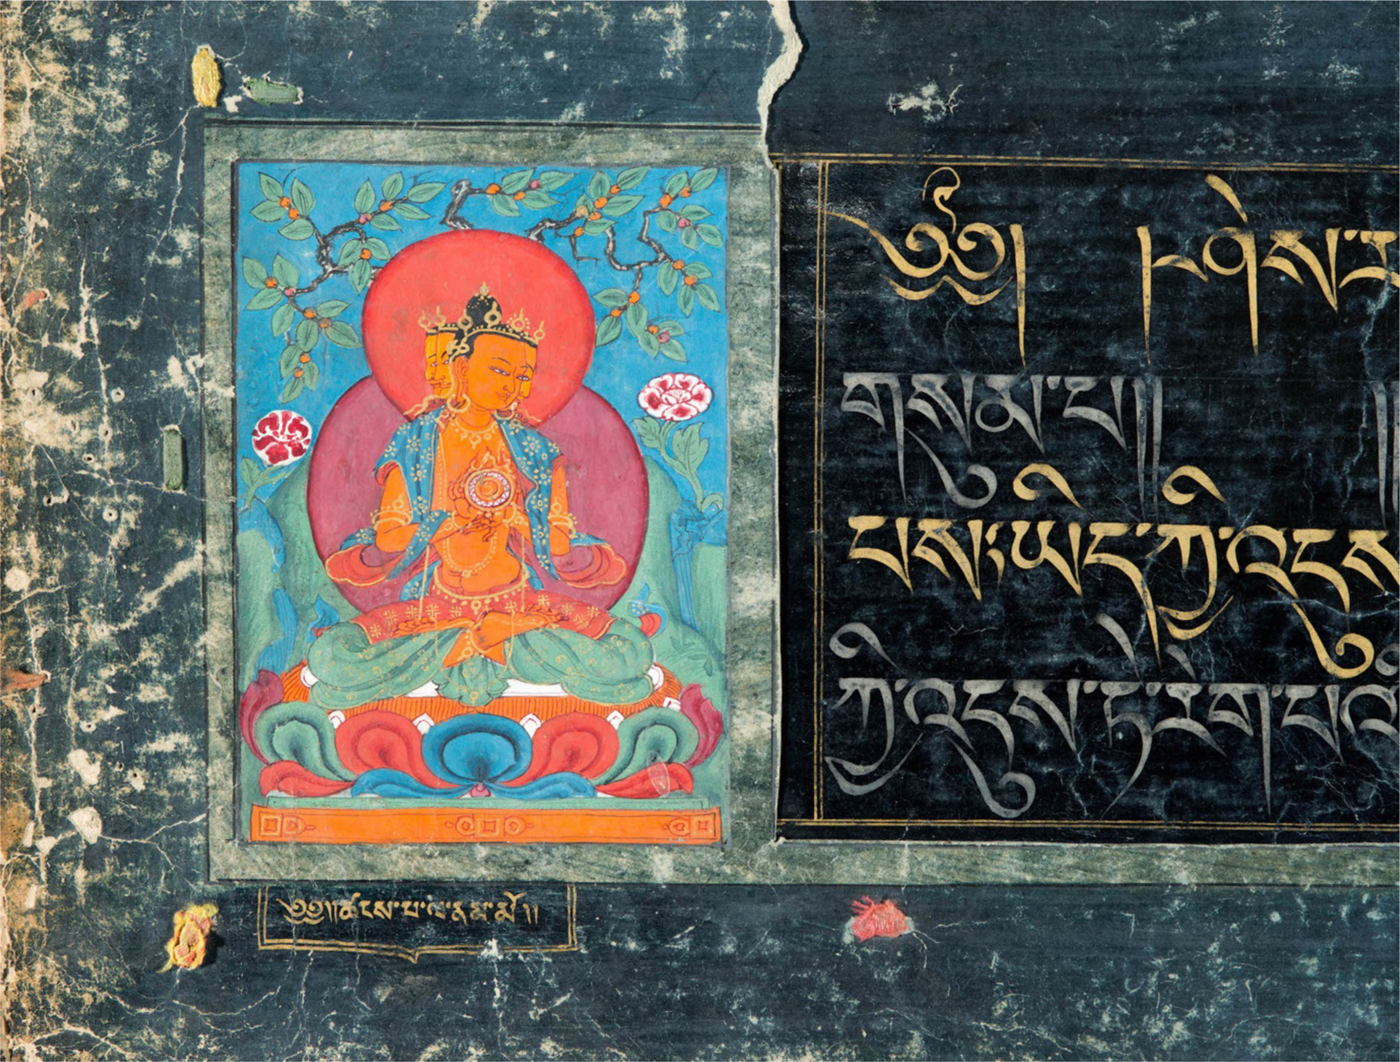 ༄༅། །ཤེས་ར
གསུམ་པ།། །
པས་ཡིད་ཀྱི་འདུས
ཀྱི་འདུས་ཏེ་རེག་པའི
༄༅།།ཚངས་པ་ལ་ན་མ་མོ།།